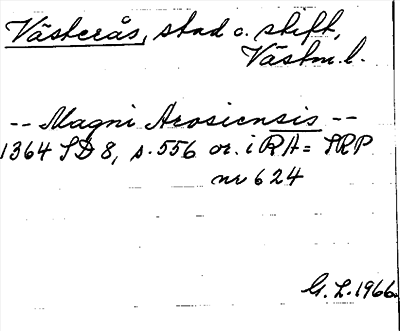 Västerås, stad o. stift,
Västm. l.
-- Magni Arosiensis --
1364 SD 8, s. 556 or. i RA = SRP
nr 624
G. L. 1966.